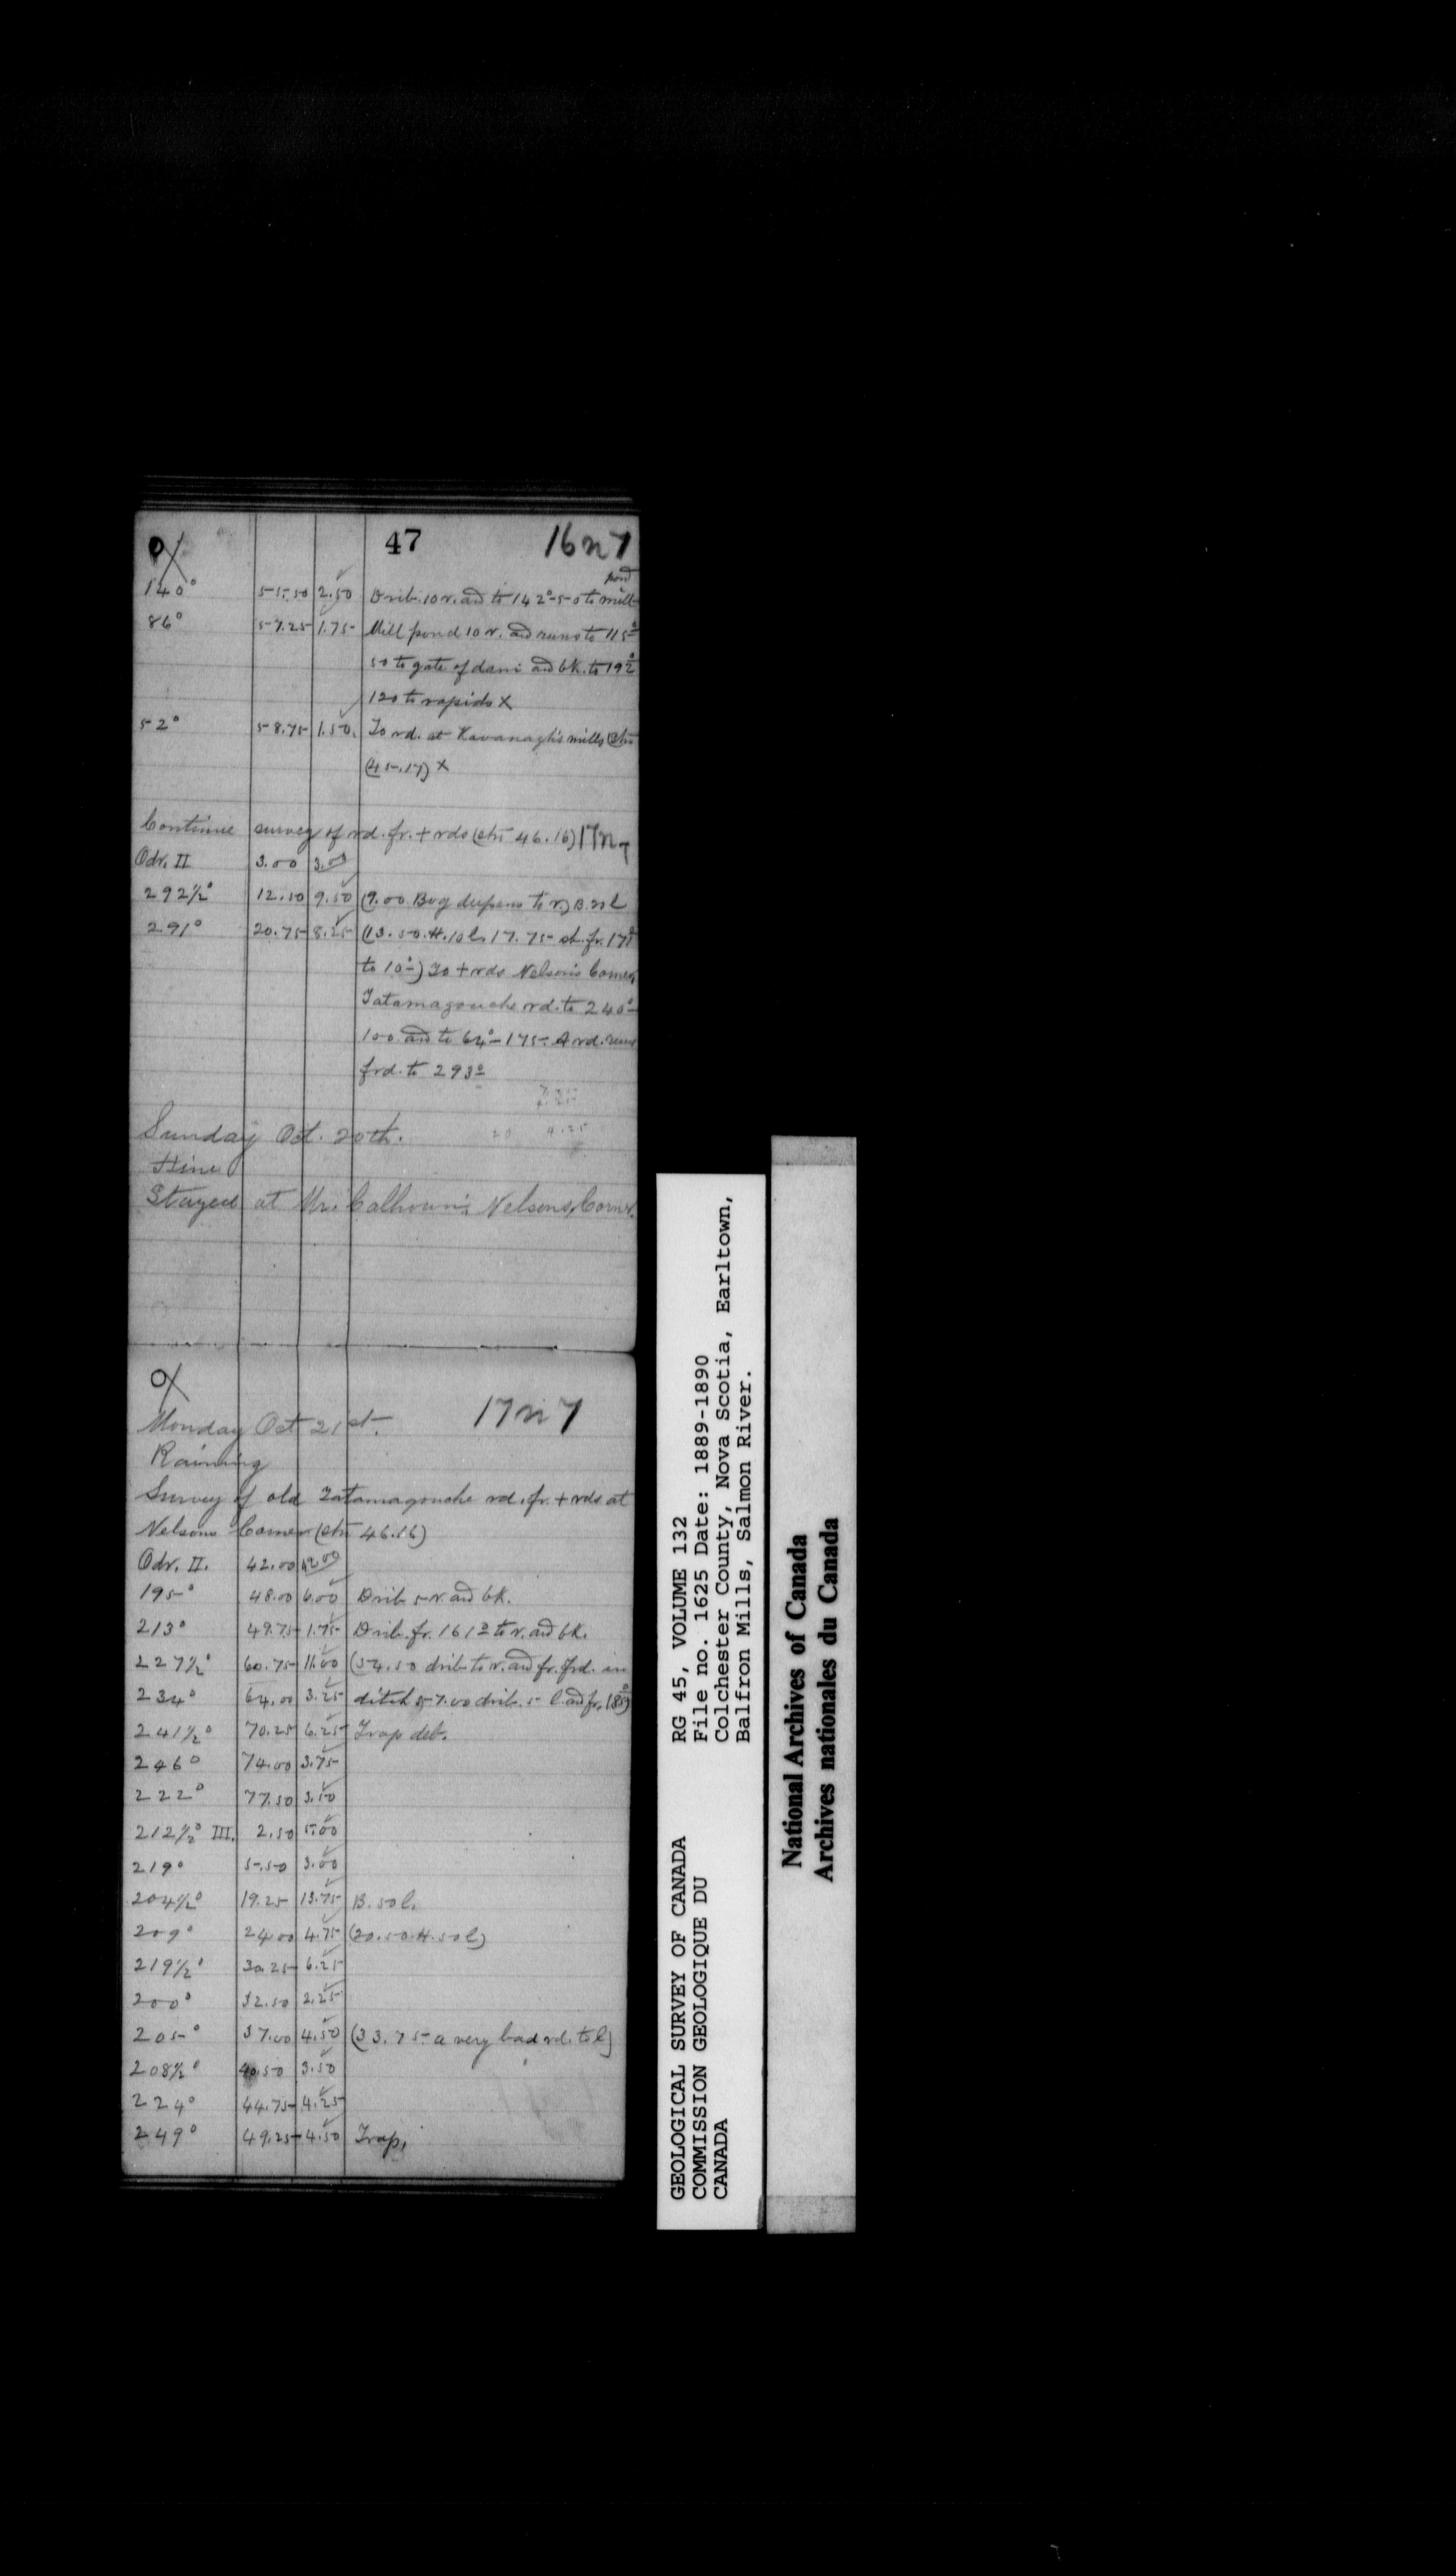 47
16 n 7
pond
140° 55.50 2.50 Brib. 10 r. and to 142°-50 to mill
86° 57.25 1.75 Mill pond 10 r. and runs to 115°
50 to gate of dam and bk. to 192°
120 to rapids X
52° 58.75 1.50. To rd. at Kavanagh's mills (stn
(45.17) X
Continue survey of rd. fr. + rds (stn 46.16) 17 n 7
Odr. II 3.00 3.00
292½° 12.50 9.50 (9.00 Bog deepens to r.) B. 20 l
291° 20.75 8.25 (13.50. H. 10 l. 17.75 st. fr. 171°
to 10°) To + rds Nelson's Corner,
Tatamagouche rd. to 240°-
100 and to 64°-175. A rd. runs
frd. to 293°
20 4.25
Sunday Oct. 20th.
Fine
Stayed at Mr. Calhoun's Nelsons Corner.
17 n 7
Monday Oct 21st.
Raining
Survey of old Tatamagouche rd. fr. + rds at
Nelsons Corner (stn 46.16)
Odr. II. 42.00 42.00
195° 48.00 6.00 Brib 5 r. and bk.
213° 49.75 1.75 Brib. fr. 161° to r. and bk.
227½° 60.75 11.00 (54.50 brib to r. and fr. frd. in
234° 64.00 3.25 ditch 57.00 brib. 5 l. and fr. 185°)
241½° 70.25 6.25 Trap deb.
246° 74.00 3.75
222° 77.50 3.50
212½° III. 2.50 5.00
219° 5.50 3.00
204½° 19.25 13.75 B. 50 l.
209° 24.00 4.75 (20.50. H. 50 l)
219½° 30.25 6.25
200° 32.50 2.25
205° 37.00 4.50 (33.75 a very bad rd. to l)
208½° 40.50 3.50
224° 44.75 4.25
249° 49.25 4.50 Trap.
GEOLOGICAL SURVEY OF CANADA
COMMISSION GEOLOGIQUE DU
CANADA
RG 45, VOLUME 132
File no. 1625 Date: 1889-1890
Colchester County, Nova Scotia, Earltown,
Balfron Mills, Salmon River.
National Archives of Canada
Archives nationales du Canada